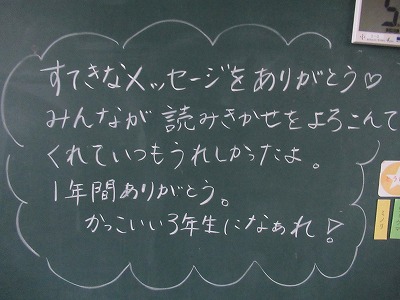 すてきなメッセージをありがとう♡
みんなが読みきかせをよろこんで
くれていつもうれしかったよ。
1年間ありがとう。
かっこいい3年生になぁれ!